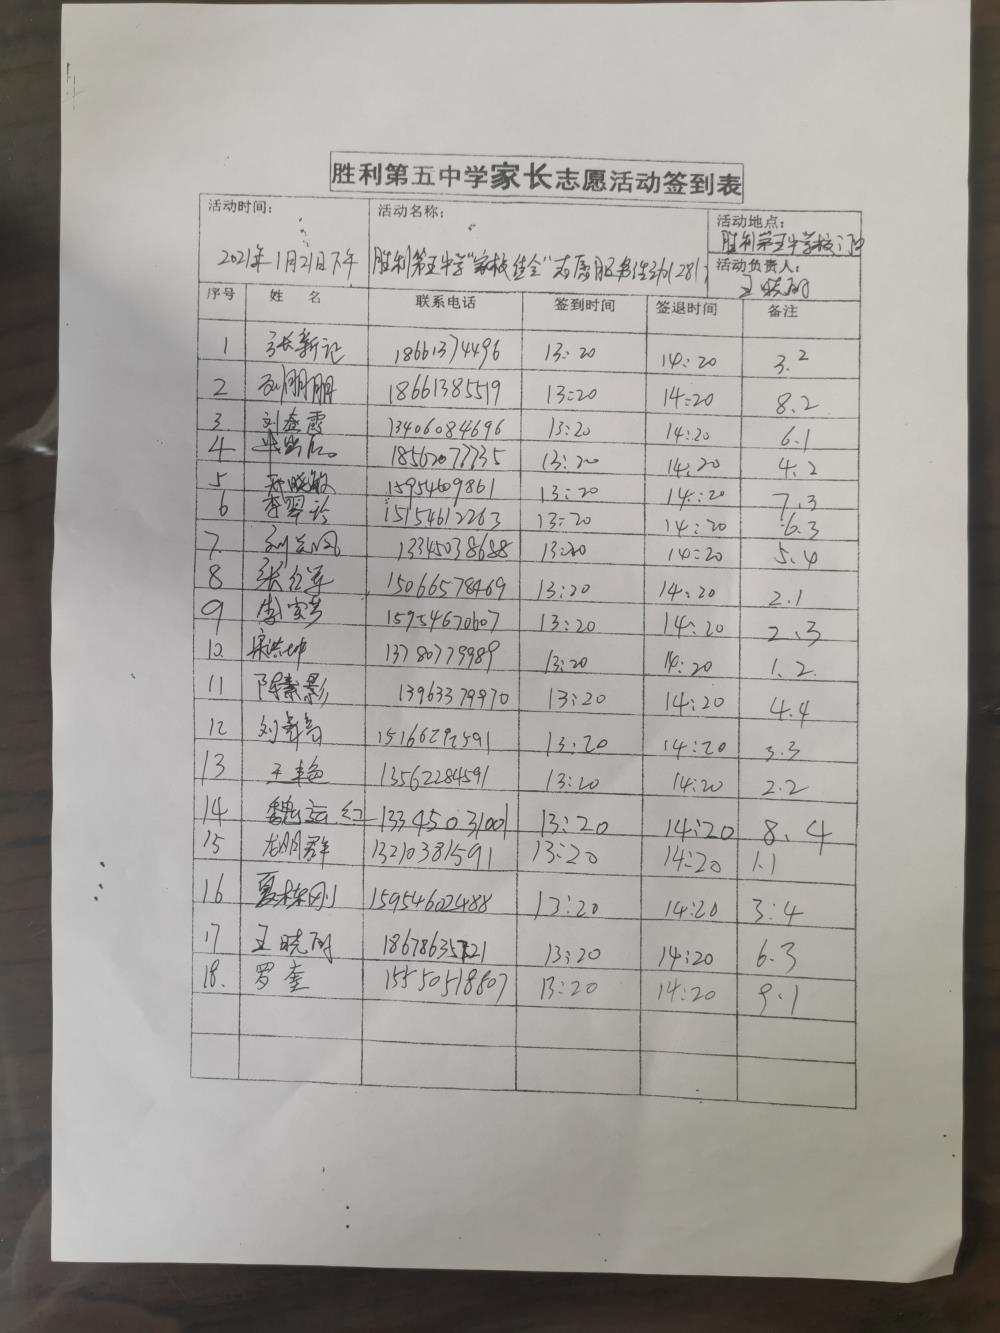 胜利第五中学家长志愿活动签到表
活动时间: 活动名称: 活动地点:
2021年1月21日下午 胜利第五中学"家校佳会"志愿服务活动(281) 胜利第五中学校门口
活动负责人:
王晓丽
序号 姓 名 联系电话 签到时间 签退时间 备注
1 张新记 18661374496 13:20 14:20 3.2
2 刘朋朋 18661385519 13:20 14:20 8.2
3. 刘春霞 13406084696 13:20 14:20 6.1
4 18562077735 13:20 14:20 4.2
5 晓敏 15954609861 13:20 14:20 7.3
6 李翠玲 15154612263 13:20 14:20 6.3
7. 刘兰凤 13345038688 13:20 14:20 5.4
8 张红莲 15066578469 13:20 14:20 2.1
9 李 15954670607 13:20 14:20 2.3
10. 宋洪坤 13780779989 13:20 14:20 1.2.
11 陈素影 13963379970 13:20 14:20 4.4
12 刘 15166292591 13:20 14:20 3.3
13 王艳 13562284591 13:20 14:20 2.2
14 魏运红 13345031001 13:20 14:20 8.4
15 龙朋群 13210381591 13:20 14:20 1.1
16 夏栋刚 15954602488 13:20 14:20 3:4
17 王晓丽 18678635721 13:20 14:20 6.3
18. 罗奎 15550518807 13:20 14:20 9.1